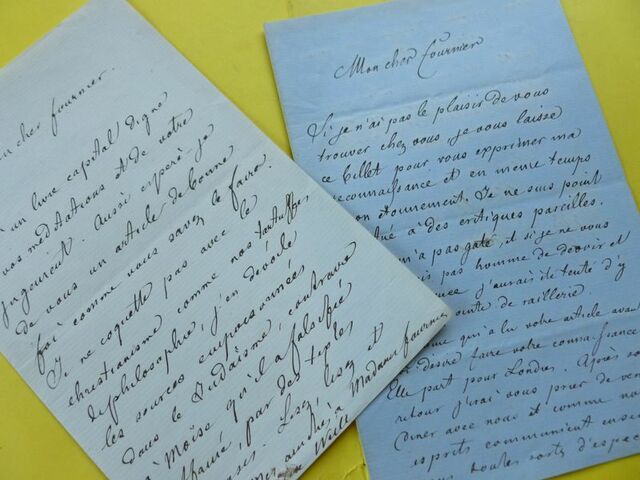 on cher fournier.
un livre capital digne
vos meditations et de votre
jugement. Aussi esperè-je
de vous un article de bonne
foi comme vous savez le faire.
Je ne coquette pas avec le
christianisme comme nos tartuffes
de philosophie, j'en dévoile
les sources empoisonnées
dans le Judaïsme, contraire
à Moïse qu'il a falsifié
par des
Lisez, lisez et
à Madame fournier
Weill
Mon cher Fournier
Si je n'ai pas le plaisir de vous
trouver chez vous je vous laisse
ce Billet pour vous exprimer ma
econnaissance et en meme temps
on etonnement. Je ne suis point
tué à des critiques pareilles.
m'a pas gaté, et si je ne vous
is pas homme de devoir et
j'aurai été tenté d'y
ointe de raillerie.
me qui a lu votre article avan
desire faire votre connaissance
Elle part pour Londres. Après so
retour j'irai vous prier de ven
diner avec nous et comme no
esprits communient ensem
toutes sortes d'espec